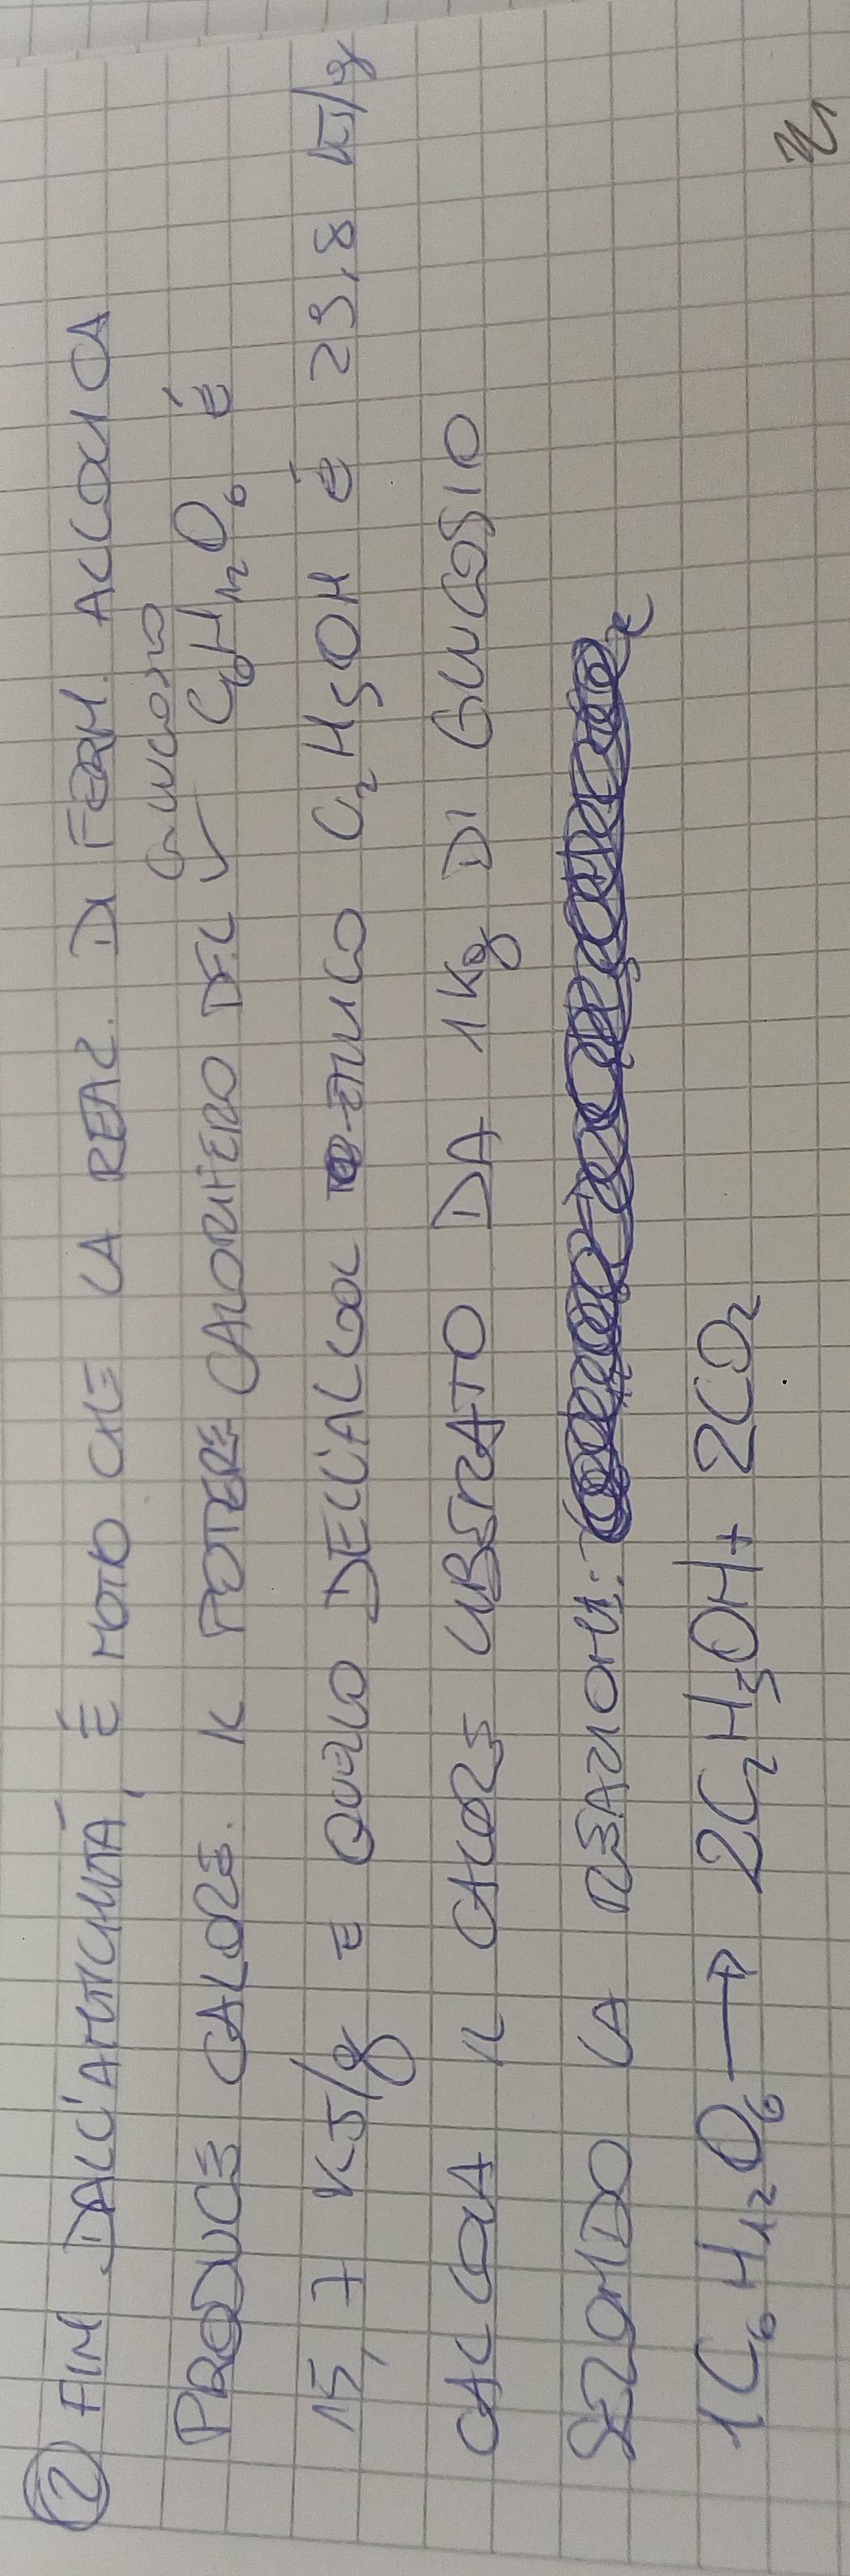 2 FIN DALL'ANTICHITÁ, É NOTO CHE LA REAZ. DI FERM. ALCOLICA
GLUCOSIO
PRODUCE CALORE. IL POTERE CALORIFERO DEL C6H12O6 É
15,7 KJ/g E QUELLO DELL'ALCOOL ETILICO C2H5OH É 29,8 KJ/g
CALCOLA IL CALORE LIBERATO DA 1Kg DI GLUCOSIO
SECONDO LA REAZIONE:
1C6H12O6 → 2C2H5OH + 2CO2